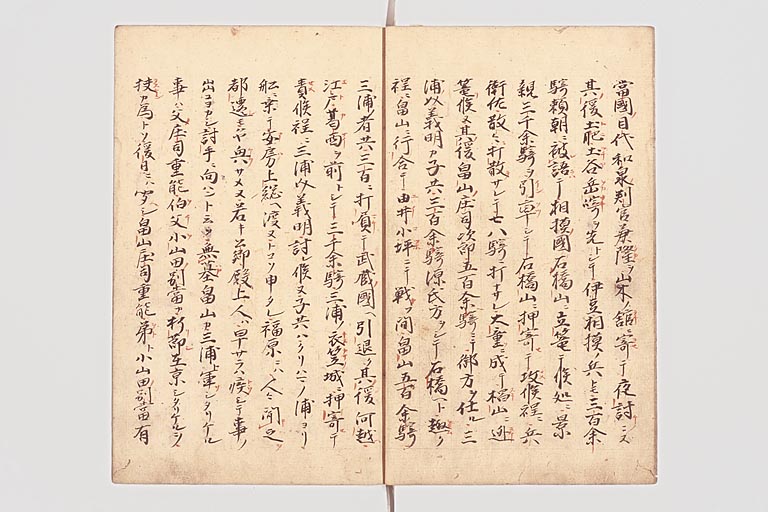 當國目代和泉判官兼隆ヲ山木ノ舘ニ寄テ夜討ニス
其後土肥土谷岳崎ヲ先トシテ伊豆相摸ノ兵トモ三百余
騎頼朝ニ被語テ相摸國石橋山ニ立篭テ候処ニ景
親三千余騎ヲ引率シテ石橋山ニ押寄テ攻候程ニ兵
衛佐散々ニ打散サレテ七八騎ニ打ナサレ大童ニ成テ椙山ニ逃
篭候又其後畠山庄司次郎五百余騎ニテ御方ヲ仕ル三
浦ノ義明カ子共三百余騎源氏方ヲシテ石橋ヘト趣ク
程ニ畠山ニ行合テ由井小坪ニテ戦フ間畠山五百余騎
三浦者共三百ニ打負テ武蔵國ヘ引退ク其後何越
江戸葛西ヲ前トシテ三千余騎三浦ノ衣笠城ニ押寄テ
責候程ニ三浦ノ義明討レ候又子共ハクリハマノ浦ヨリ
舩ニ乗テ安房上総ヘ渡ヌトコソ申タレ福原ニハ人々聞之
都遷モハヤ興サメヌ若キ公卿殿上人ハ早サラハ疾シテ事ノ
出コヨカシ討手ニ向ハントニソ無墓畠山カ三浦ト軍シタリケル
事ハ父庄司重能伯父小山田別當カ折節在京シタリケルヲ
技カ為トソ後日ニハ聞シ畠山庄司重能弟ト小山田別當有